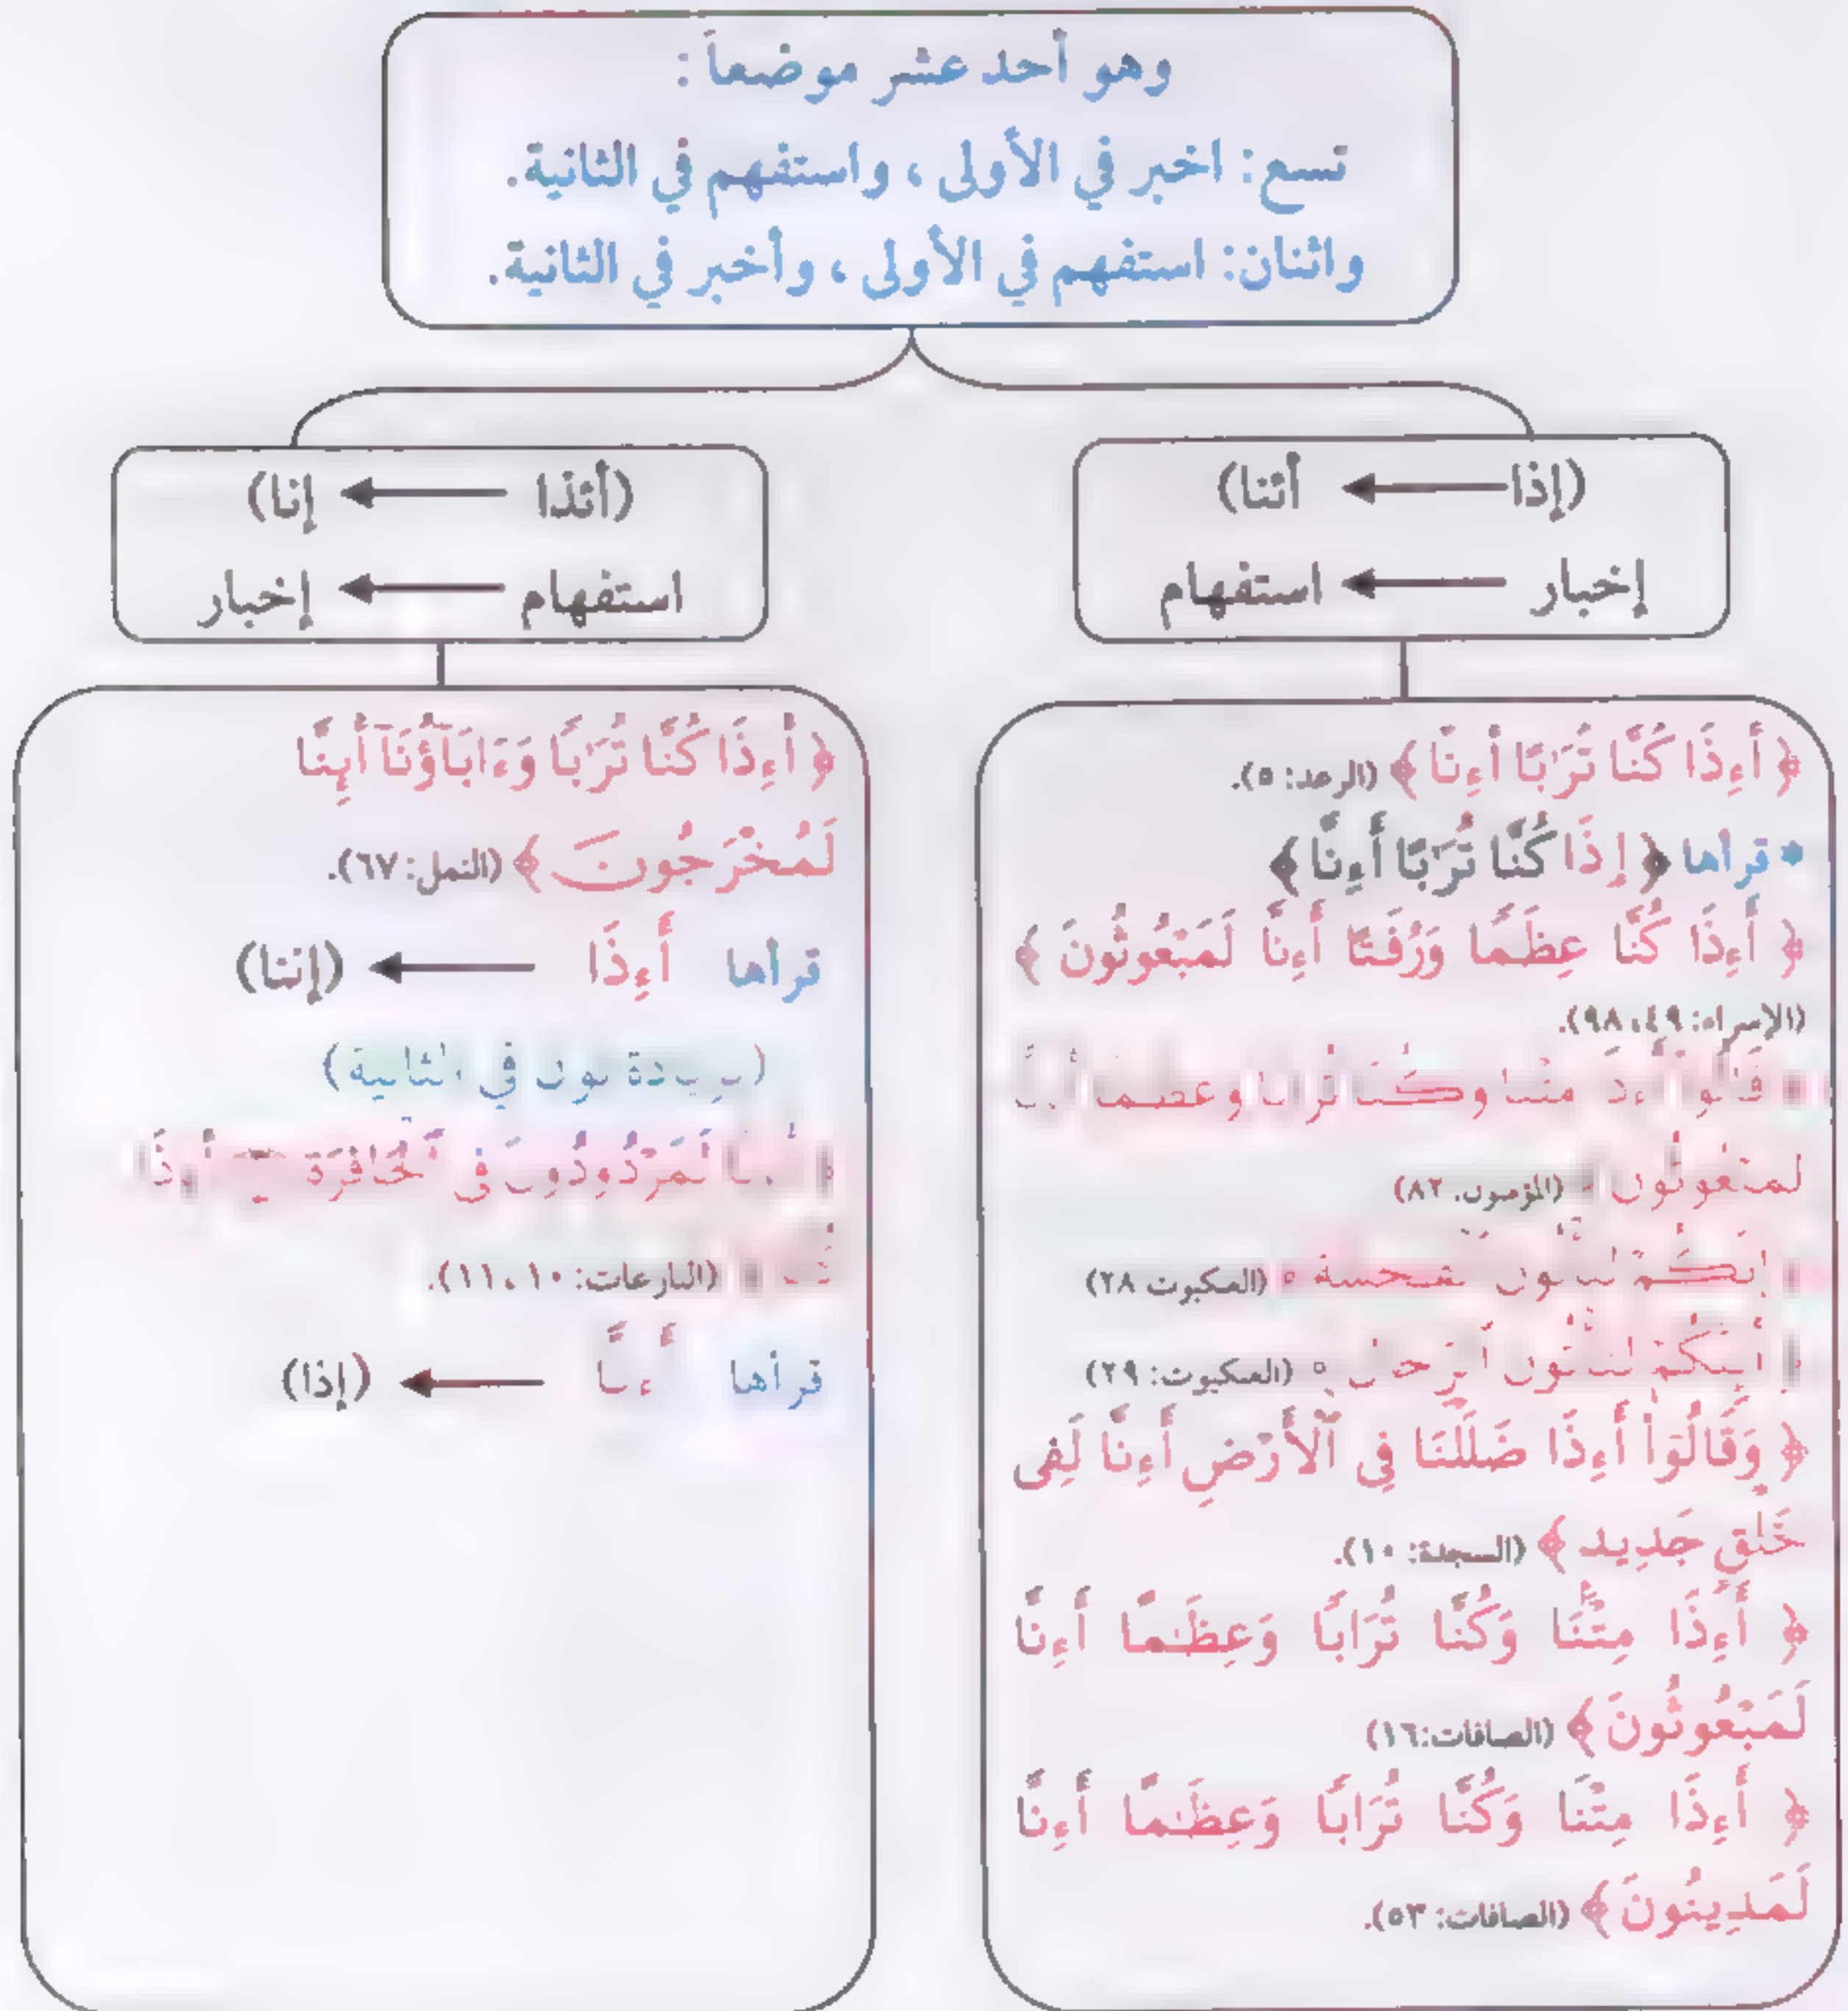 وهو أحد عشر موضعاً :
تسع: اخبر في الأولى ، واستفهم في الثانية.
واثنان: استفهم في الأولى ، وأخبر في الثانية.
(إذا ← أئنا)
إخبار ← استفهام
﴿ أَءِذَا كُنَّا تُرَٰبًا أَءِنَّا ﴾ (الرعد: ٥).
* قرأها ﴿ إِذَا كُنَّا تُرَٰبًا أَءِنَّا ﴾
﴿ أَءِذَا كُنَّا عِظَٰمًا وَرُفَٰتًا أَءِنَّا لَمَبْعُوثُونَ ﴾
(الإسراء: ٤٩، ٩٨).
وعظما
لمبعوثون (المؤمنون. ٨٢)
(العنكبوت ٢٨)
(العنكبوت: ٢٩)
﴿ وَقَالُوٓا۟ أَءِذَا ضَلَلْنَا فِى ٱلْأَرْضِ أَءِنَّا لَفِى
خَلْقٍ جَدِيدٍ ﴾ (السجدة: ١٠).
﴿ أَءِذَا مِتْنَا وَكُنَّا تُرَابًا وَعِظَٰمًا أَءِنَّا
لَمَبْعُوثُونَ ﴾ (الصافات:١٦)
﴿ أَءِذَا مِتْنَا وَكُنَّا تُرَابًا وَعِظَٰمًا أَءِنَّا
لَمَدِينُونَ ﴾ (الصافات: ٥٣).
(أئذا ← إنا)
استفهام ← إخبار
﴿ أَءِذَا كُنَّا تُرَٰبًا وَءَابَآؤُنَآ أَئِنَّا
لَمُخْرَجُونَ ﴾ (النمل: ٦٧).
قرأها أَءِذَا ← (إننا)
(بزيادة نون في الثانية)
لَمَرْدُودُونَ فِى ٱلْحَافِرَةِ أَءِذَا
(النازعات: ١٠، ١١).
قرأها أَءِنَّا ← (إذا)